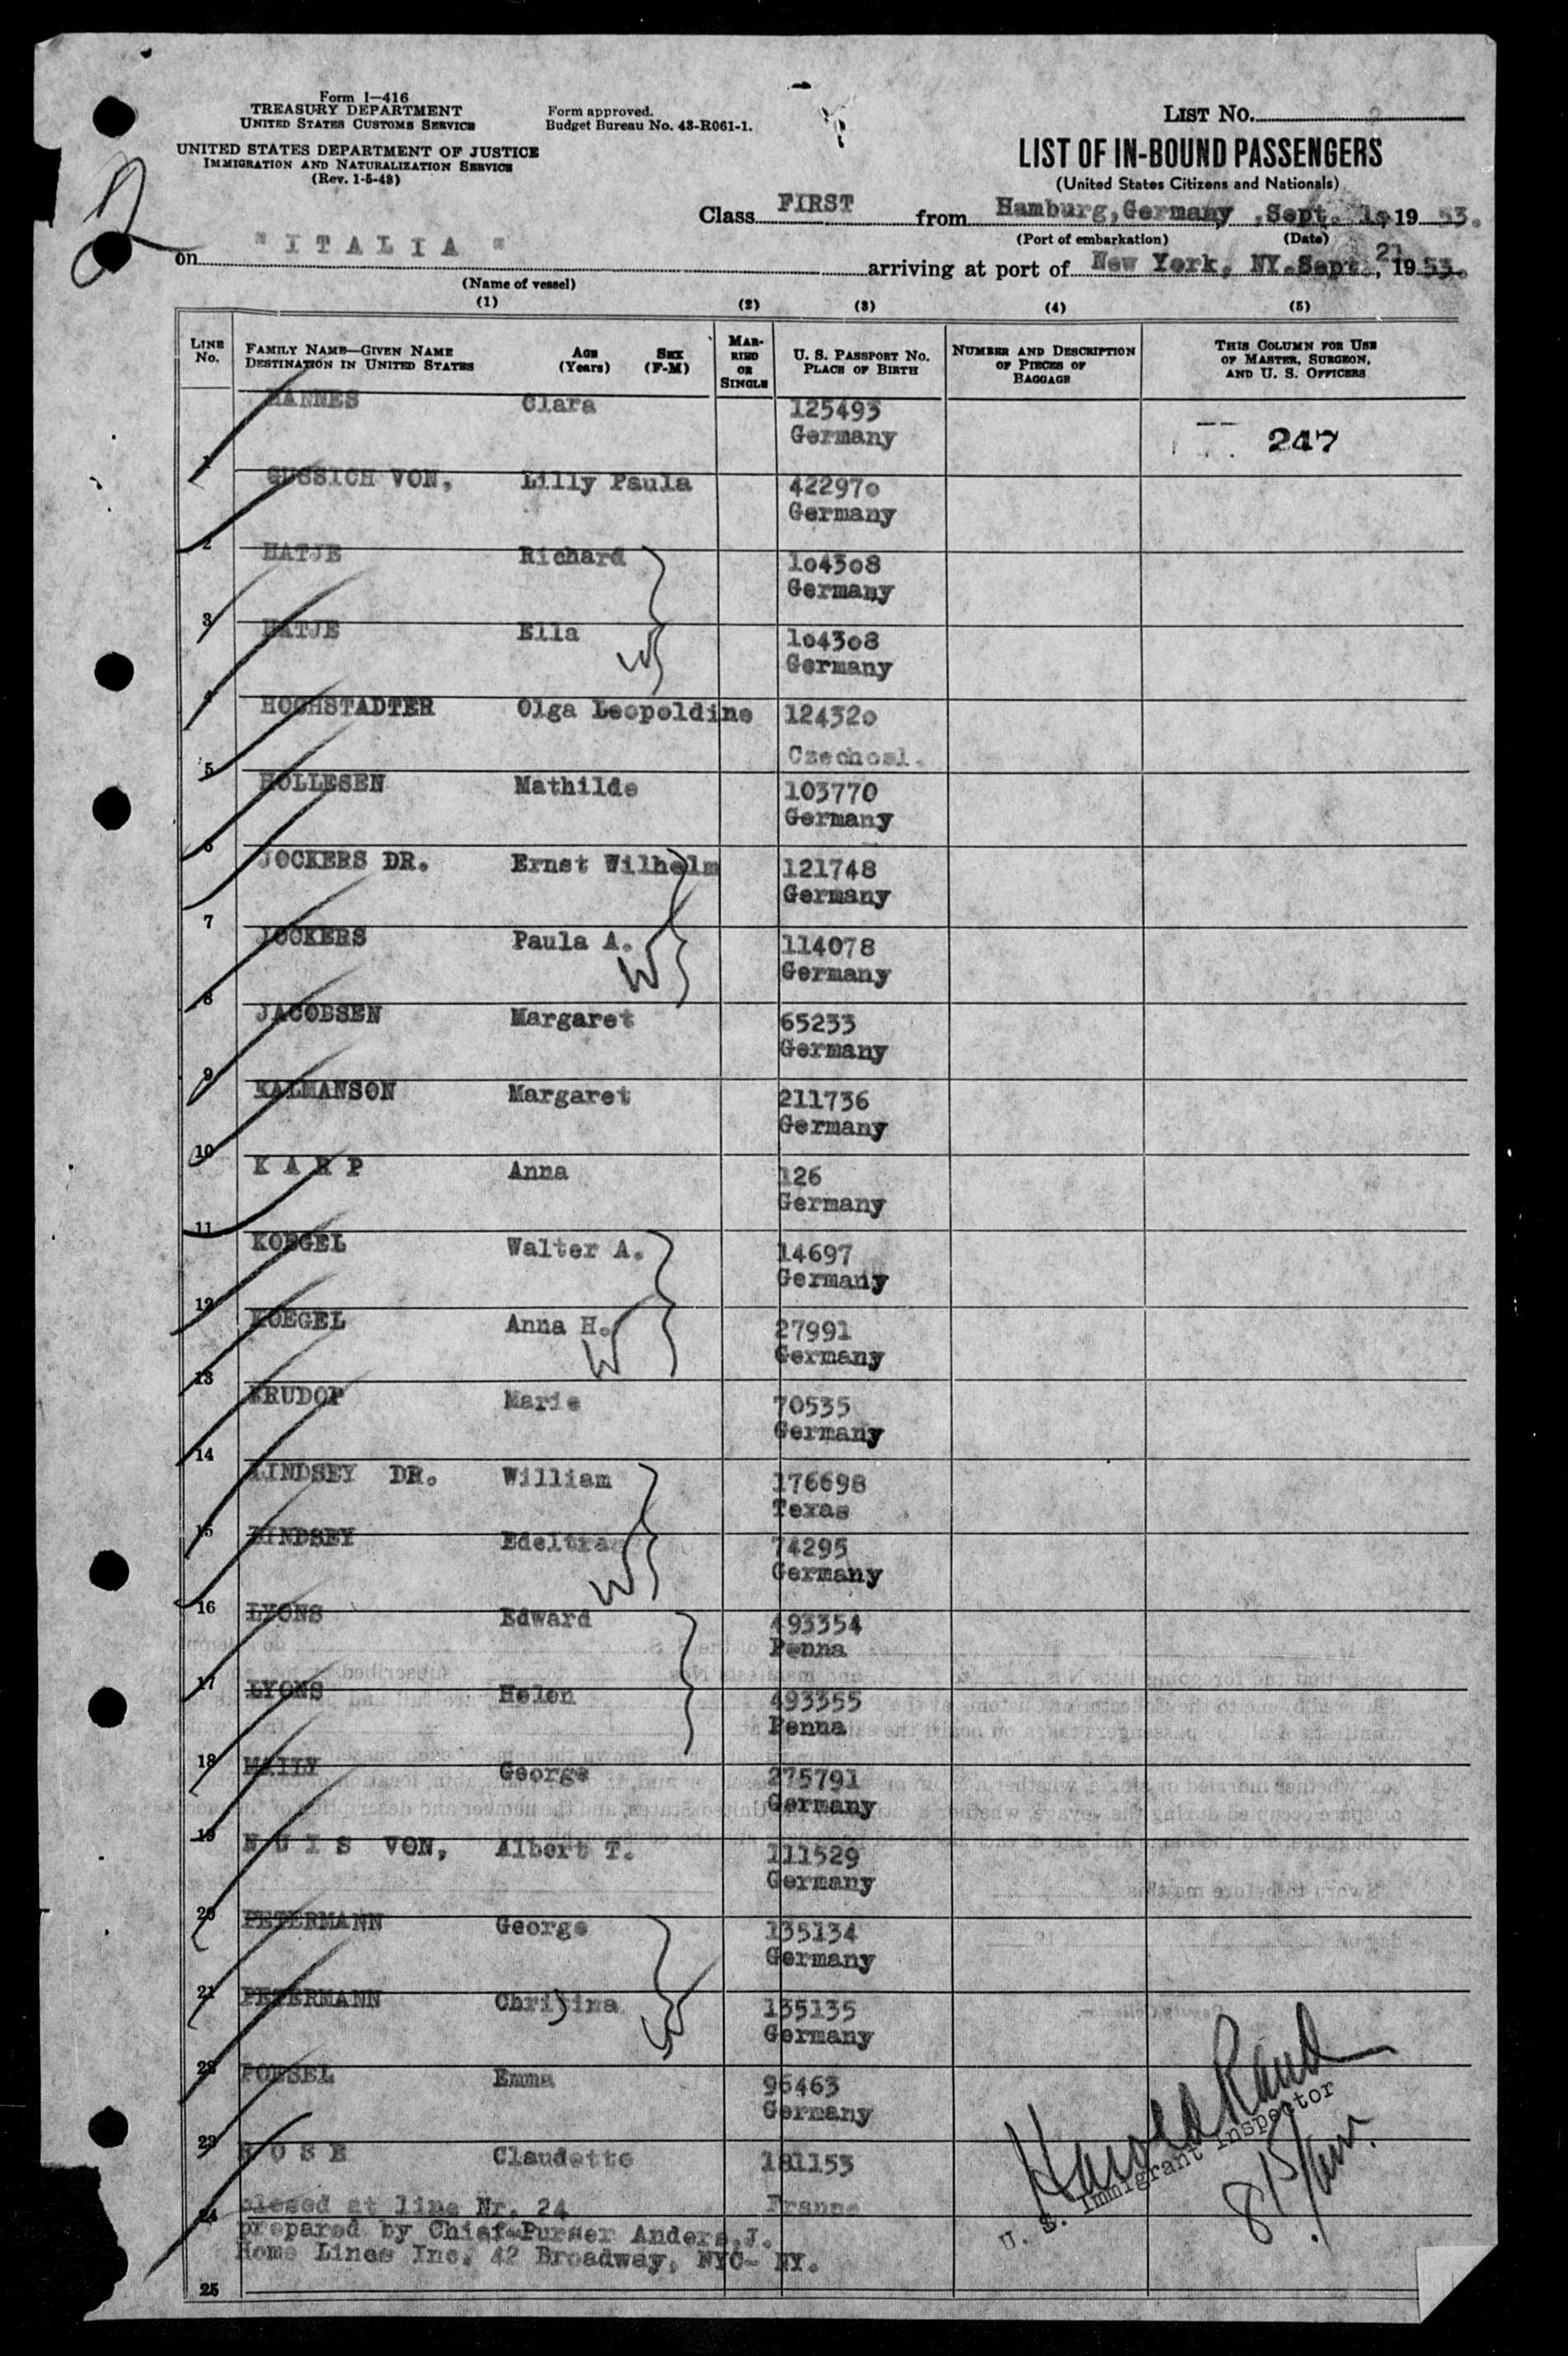 Form I—416
TREASURY DEPARTMENT
UNITED STATES CUSTOMS SERVICE
Form approved.
Budget Bureau No. 43-R061-1.
UNITED STATES DEPARTMENT OF JUSTICE
IMMIGRATION AND NATURALIZATION SERVICE
(Rev. 1-5-48)
LIST NO. 2
LIST OF IN-BOUND PASSENGERS
(United States Citizens and Nationals)
Class FIRST from Hamburg, Germany , Sept. 1o, 19 53.
(Port of embarkation) (Date)
on "ITALIA" arriving at port of New York, NY. Sept. 21, 19 53.
(Name of vessel)
(1) (2) (3) (4) (5)
LINE No.
FAMILY NAME—GIVEN NAME
DESTINATION IN UNITED STATES
AGE (Years)
SEX (F-M)
MARRIED OR SINGLE
U. S. PASSPORT NO.
PLACE OF BIRTH
NUMBER AND DESCRIPTION OF PIECES OF BAGGAGE
THIS COLUMN FOR USE OF MASTER, SURGEON, AND U. S. OFFICERS
HANNES Clara 125493
1 Germany 247
GUSSICH VON, Lilly Paula 42297o
2 Germany
HATJE Richard 1o43o8
3 Germany
HATJE Ella 1o43o8
4 W Germany
HOCHSTADTER Olga Leopoldine 12432o
5 Czechosl.
HOLLESEN Mathilde 103770
6 Germany
JOCKERS DR. Ernst Wilhelm 121748
7 Germany
JOCKERS Paula A. 114078
8 W Germany
JACOBSEN Margaret 65233
9 Germany
KALMANSON Margaret 211736
10 Germany
K A R P Anna 126
11 Germany
KOEGEL Walter A. 14697
12 Germany
KOEGEL Anna H. 27991
13 W Germany
KRUDOP Marie 70535
14 Germany
LINDSEY DR. William 176698
15 Texas
LINDSEY 74295
16 W Germany
LYONS Edward 493354
17 Penna
LYONS Helen 493355
18 Penna
MAILY George 275791
19 Germany
N U I S VON, Albert T. 111529
20 Germany
PETERMANN George 135134
21 Germany
PETERMANN 135135
22 W Germany
POESEL Emma 96463
23 Germany
R O S E Claudette 181153
24 closed at line Nr. 24 France
prepared by Chief-Purser Anders, J.
Home Lines Inc. 42 Broadway, NYC- NY.
25
Harold Rand
U. S. Immigrant Inspector